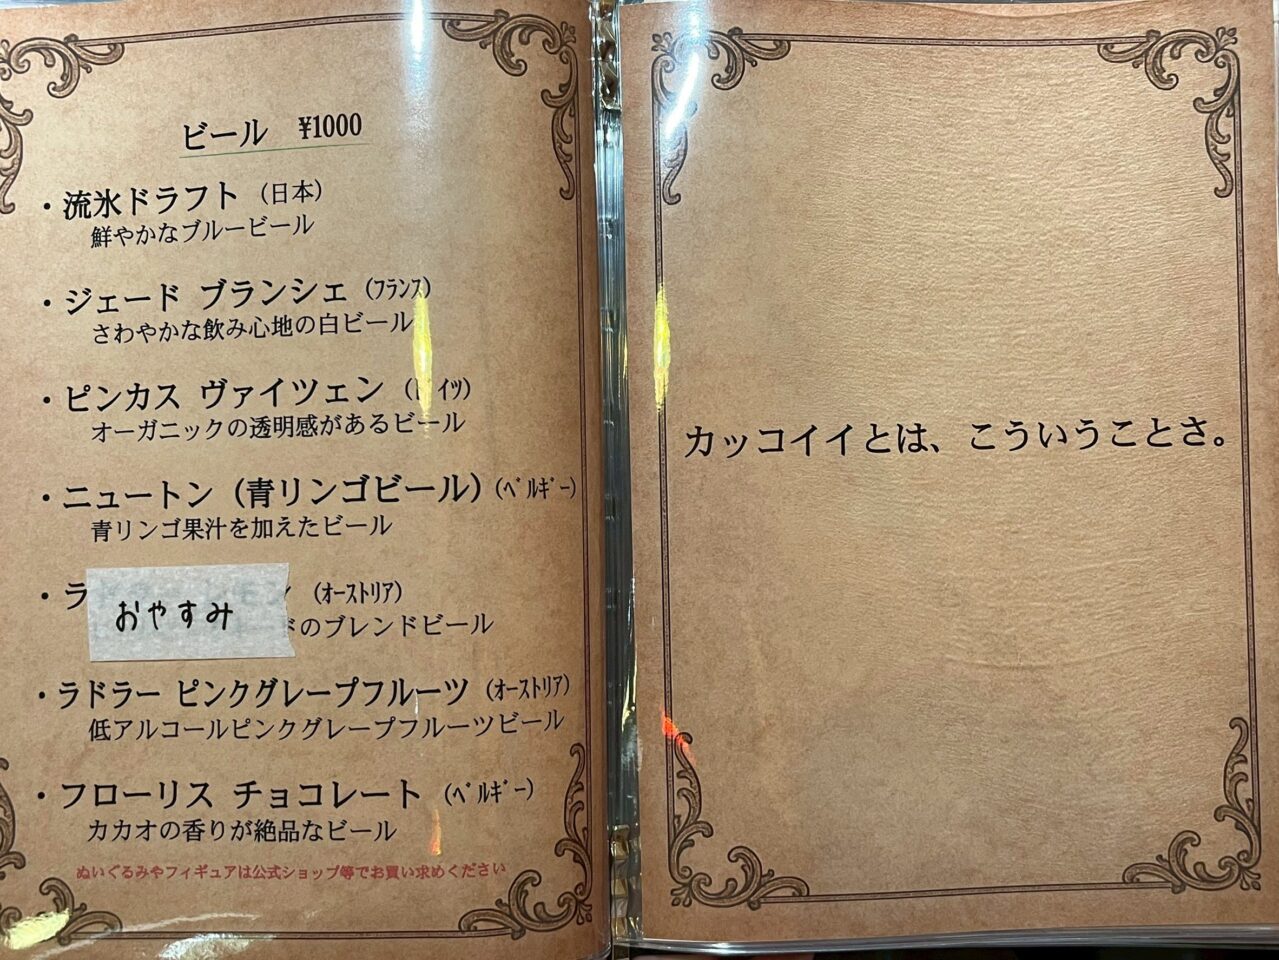 ビール ¥1000
・流氷ドラフト (日本)
鮮やかなブルービール
・ジェード ブランシェ (ﾌﾗﾝｽ)
さわやかな飲み心地の白ビール
・ピンカス ヴァイツェン (ﾄﾞｲﾂ)
オーガニックの透明感があるビール
・ニュートン (青リンゴビール) (ﾍﾞﾙｷﾞｰ)
青リンゴ果汁を加えたビール
・ラドラー レモン (ｵｰｽﾄﾘｱ)
おやすみ
のブレンドビール
・ラドラー ピンクグレープフルーツ (ｵｰｽﾄﾘｱ)
低アルコールピンクグレープフルーツビール
・フローリス チョコレート (ﾍﾞﾙｷﾞｰ)
カカオの香りが絶品なビール
ぬいぐるみやフィギュアは公式ショップ等でお買い求めください
カッコイイとは、こういうことさ。